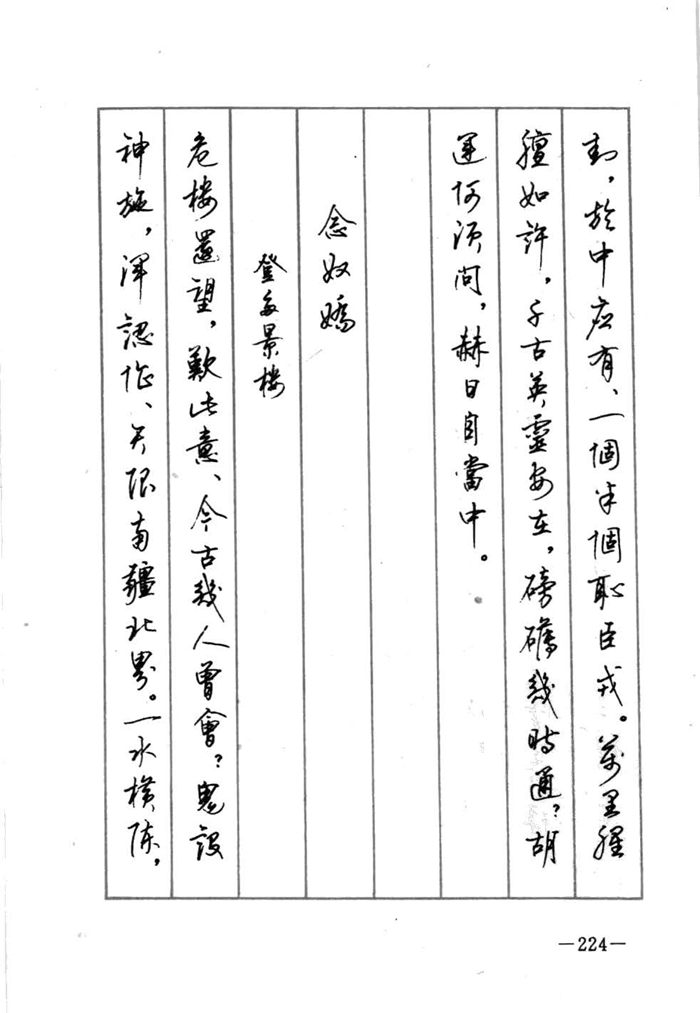 封，於中应有、一個半個恥臣戎。萬里腥
膻如許，千古英靈安在，磅礴幾時通？胡
運何須問，赫日自當中。
念奴嬌
登多景楼
危楼還望，歎此意、今古幾人曾會？鬼設
神施，渾認作、天限南疆北界。一水横陈，
—224—